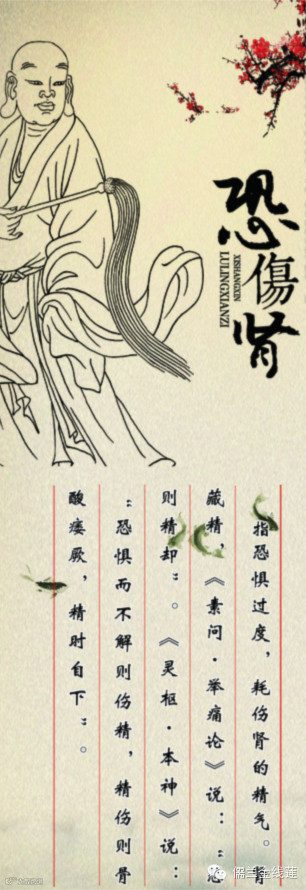 恐傷肾
XISHANGXIN
LULINGXIANZI
指恐惧过度，耗伤肾的精气。肾
藏精，《素问·举痛论》说：“恐
则精却”。《灵枢·本神》说：
“恐惧而不解则伤精，精伤则骨
酸痿厥，精时自下”。
儒兰金线莲